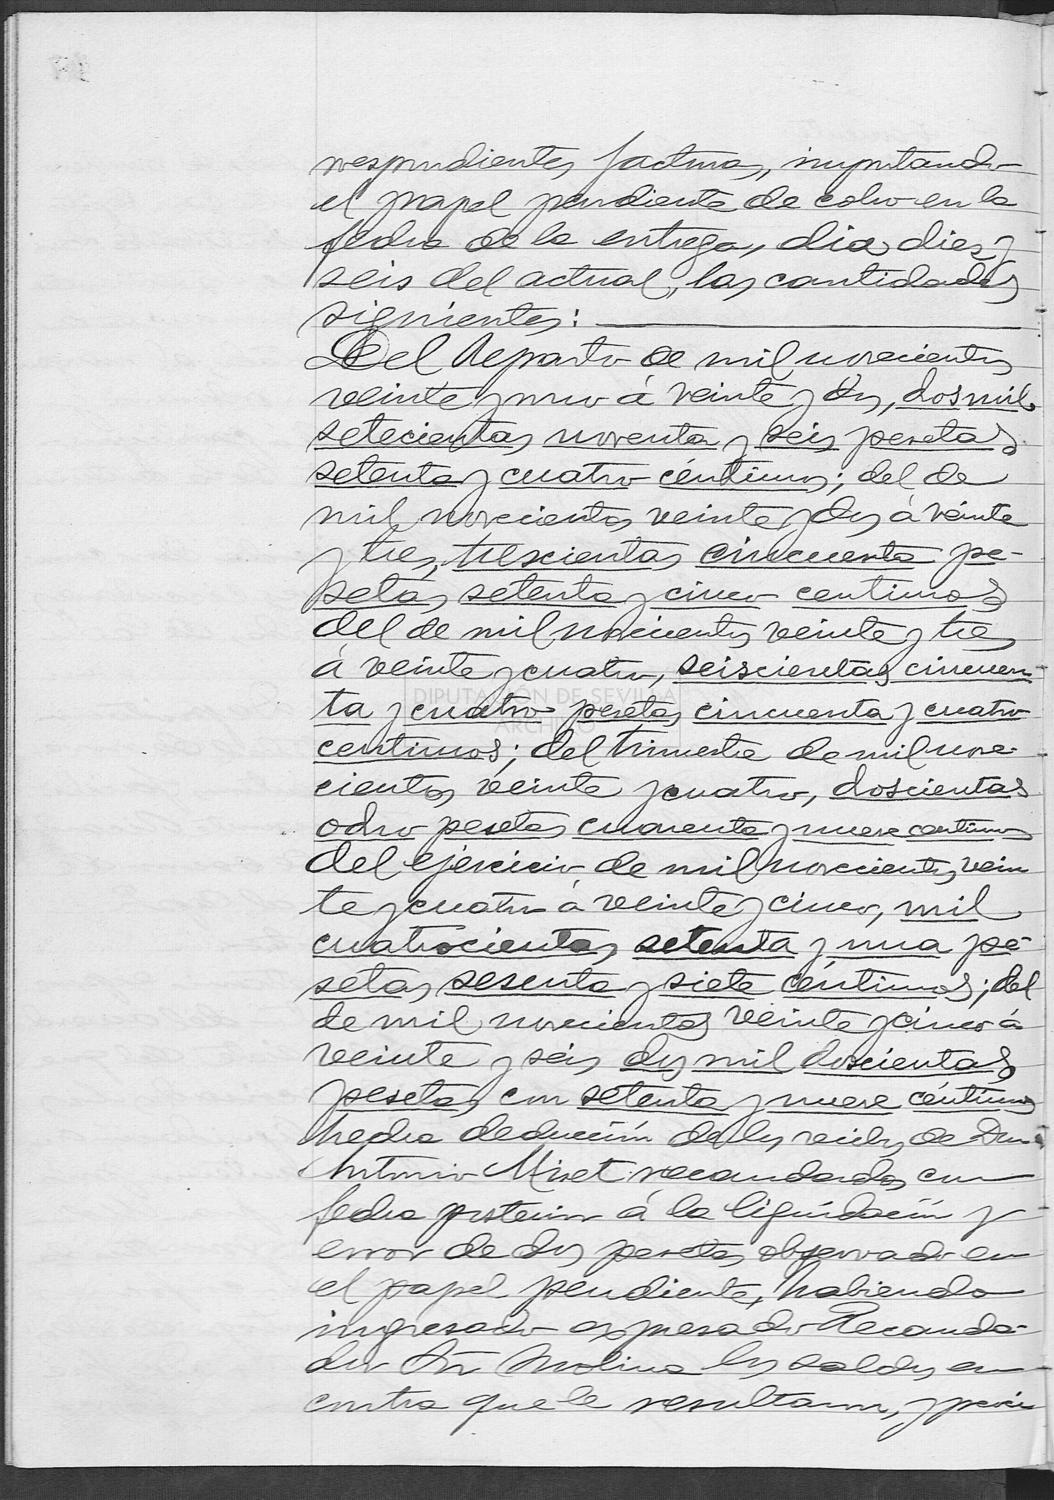 respondientes facturas, importando
el papel pendiente de cobro en la
fecha de la entrega, dia diez y
seis del actual, las cantidades
siguientes:
Del Reparto de mil novecientos
veinte y uno á veinte y dos, dos mil
setecientas noventa y seis pesetas
setenta y cuatro céntimos; del de
mil novecientos veinte y dos á veinte
y tres, trescientas cincuenta pe-
setas, setenta y cinco centimos
del de mil novecientos veinte y tres
á veinte y cuatro, seiscientas cincuen-
ta y cuatro pesetas cincuenta y cuatro
centimos; del trimestre de mil nove-
cientos veinte y cuatro, doscientas
ocho pesetas cuarenta y nueve centimos
del ejercicio de mil novecientos vein
te y cuatro a veinte y cinco, mil
cuatrocientas setenta y una pe-
setas sesenta y siete céntimos; del
de mil novecientos veinte y cinco á
veinte y seis dos mil doscientas
pesetas con setenta y nueve céntimos
hecha deducción de los recibos de Don
Antonio Miret recaudados con
fecha posterior á la liquidación y
error de dos pesetas observado en
el papel pendiente, habiendo
ingresado expresado Recauda-
dor Sr Molina los saldos en
contra que le resultaron, y
DIPUTACIÓN DE SEVILLA
ARCHIVO